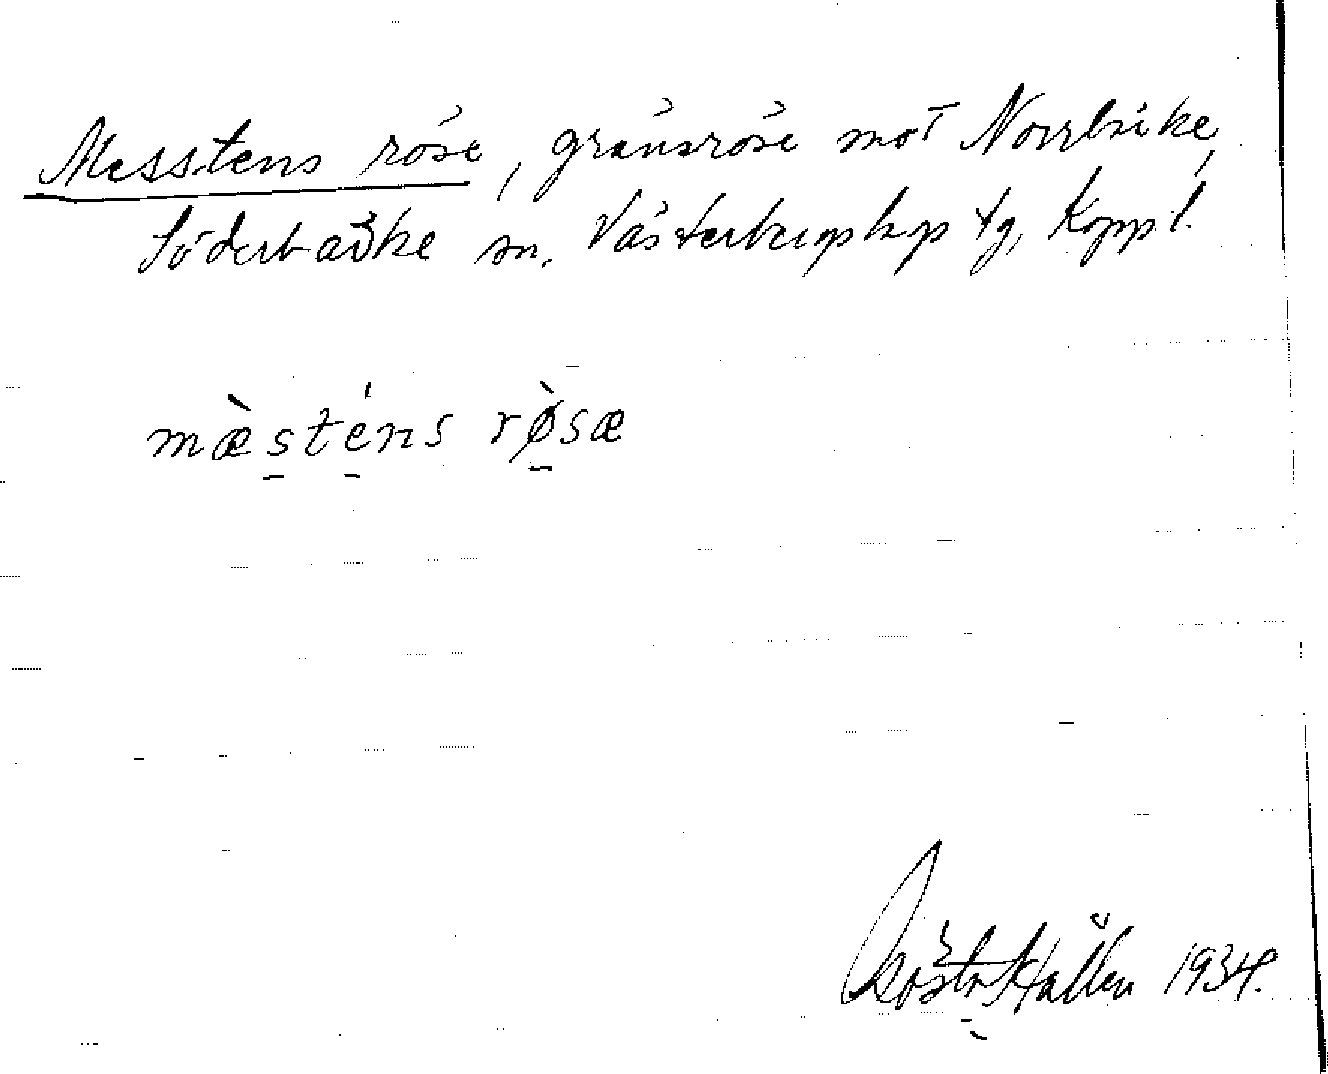 Messtens röse, gränsröse mot Norrbärke,
Söderbärke sn, Västerbergslags tg, Koppl.
mæ̀sténs rø̀sæ
Gösta Hallén 1934.